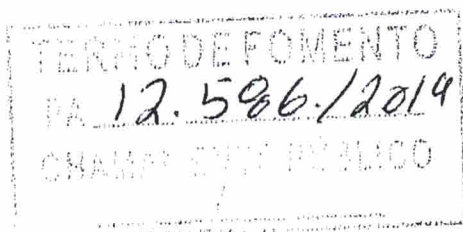 TERMO DE FOMENTO
PA 12.586./2019
CHAMAMENTO PÚBLICO
/